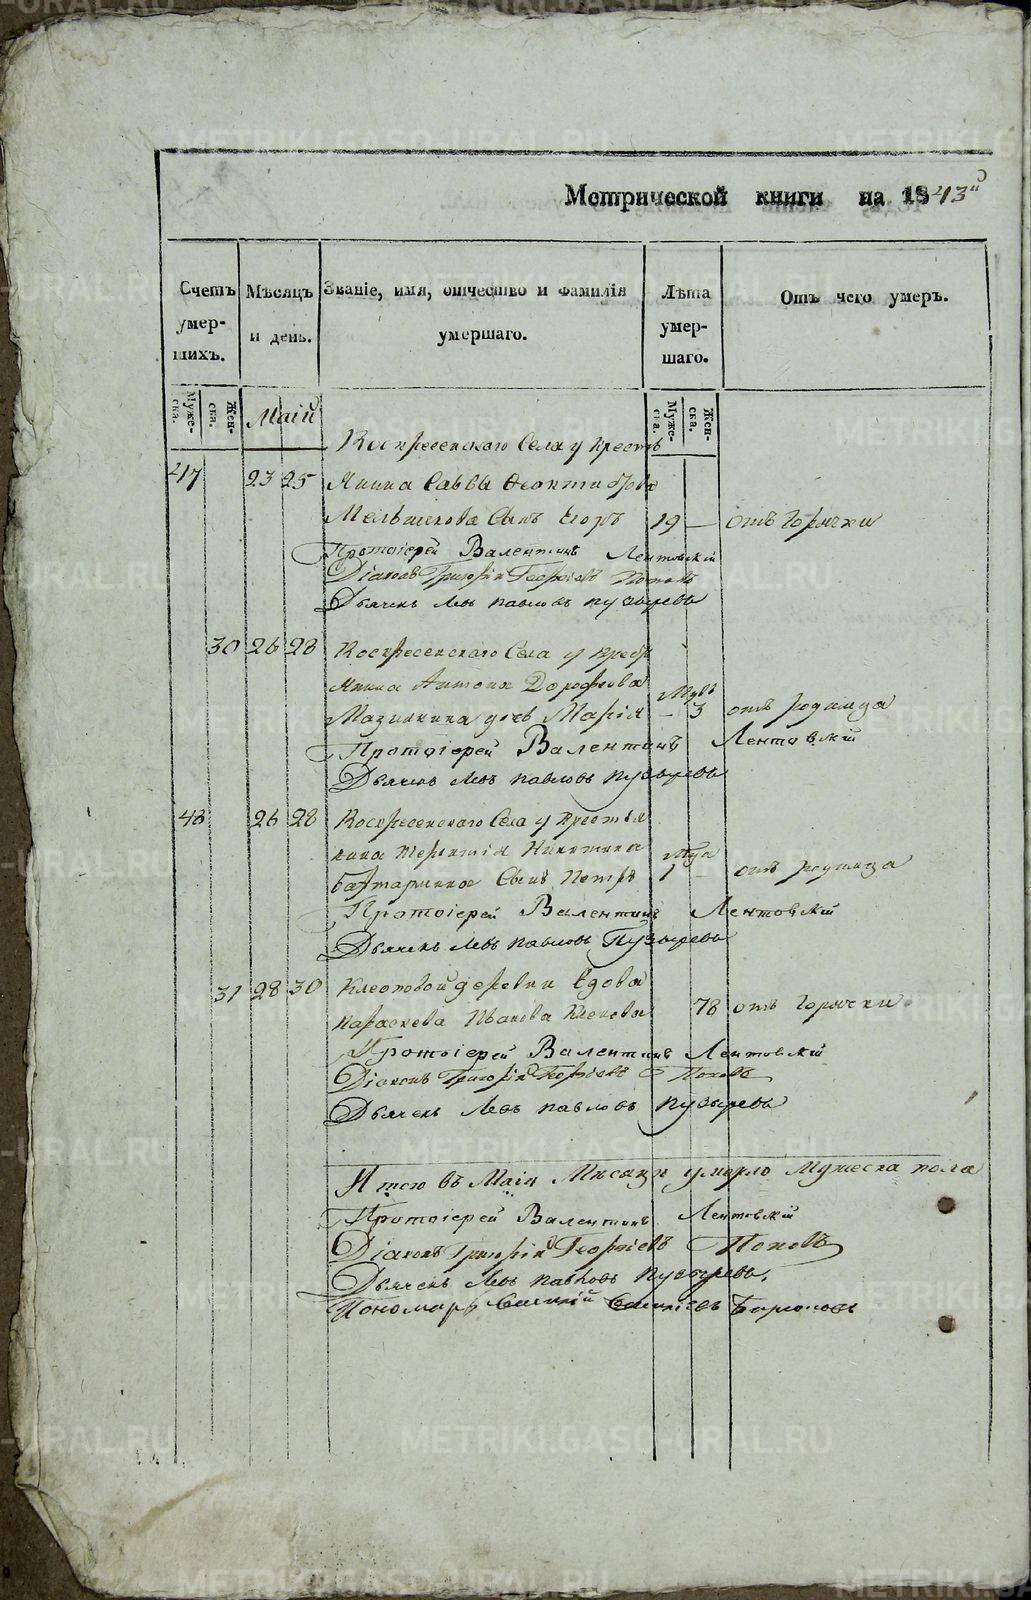 Метрической книги на 1843й
Счетъ умер- шихъ.
Мѣсяцъ и день.
Званіе, имя, отчество и фамилія умершаго.
Лѣта умер- шаго.
Отъ чего умеръ.
Муже- ска.
Жен- ска.
Маій
Муже- ска.
Жен- ска.
Воскресенскаго Села у Кресть
47 23 25 янина Саввы Леонтиева
Мельникова Сынъ Егоръ 19 — отъ Горячки
Протоіерей Валентинъ Лентовскій
Діаконъ Григорій Георгіевъ Поповъ
Дьячекъ Левъ Павловъ Пузыревъ
30 26 28 Воскресенскаго Села у Кресть
янина Антона Дорофѣева
дочь Марія — 3 отъ родимца
Протоіерей Валентинъ Лентовскій
Дьячекъ Левъ Павловъ Пузыревъ
48 26 28 Воскресенскаго Села у Крестья
нина Терентія Никитина
Сынъ Петръ 1 — отъ родимца
Протоіерей Валентинъ Лентовскій
Дьячекъ Левъ Павловъ Пузыревъ
31 28 30 деревни Вдова
Параскева Иванова 78 отъ Горячки
Протоіерей Валентинъ Лентовскій
Діаконъ Григорій Георгіевъ Поповъ
Дьячекъ Левъ Павловъ Пузыревъ
Итого въ Маіи Мѣсяцѣ умерло Мужеска пола
Протоіерей Валентинъ Лентовскій
Діаконъ Григорій Георгіевъ Поповъ
Дьячекъ Левъ Павловъ Пузыревъ
Пономарь
METRIKI.GASO-URAL.RU